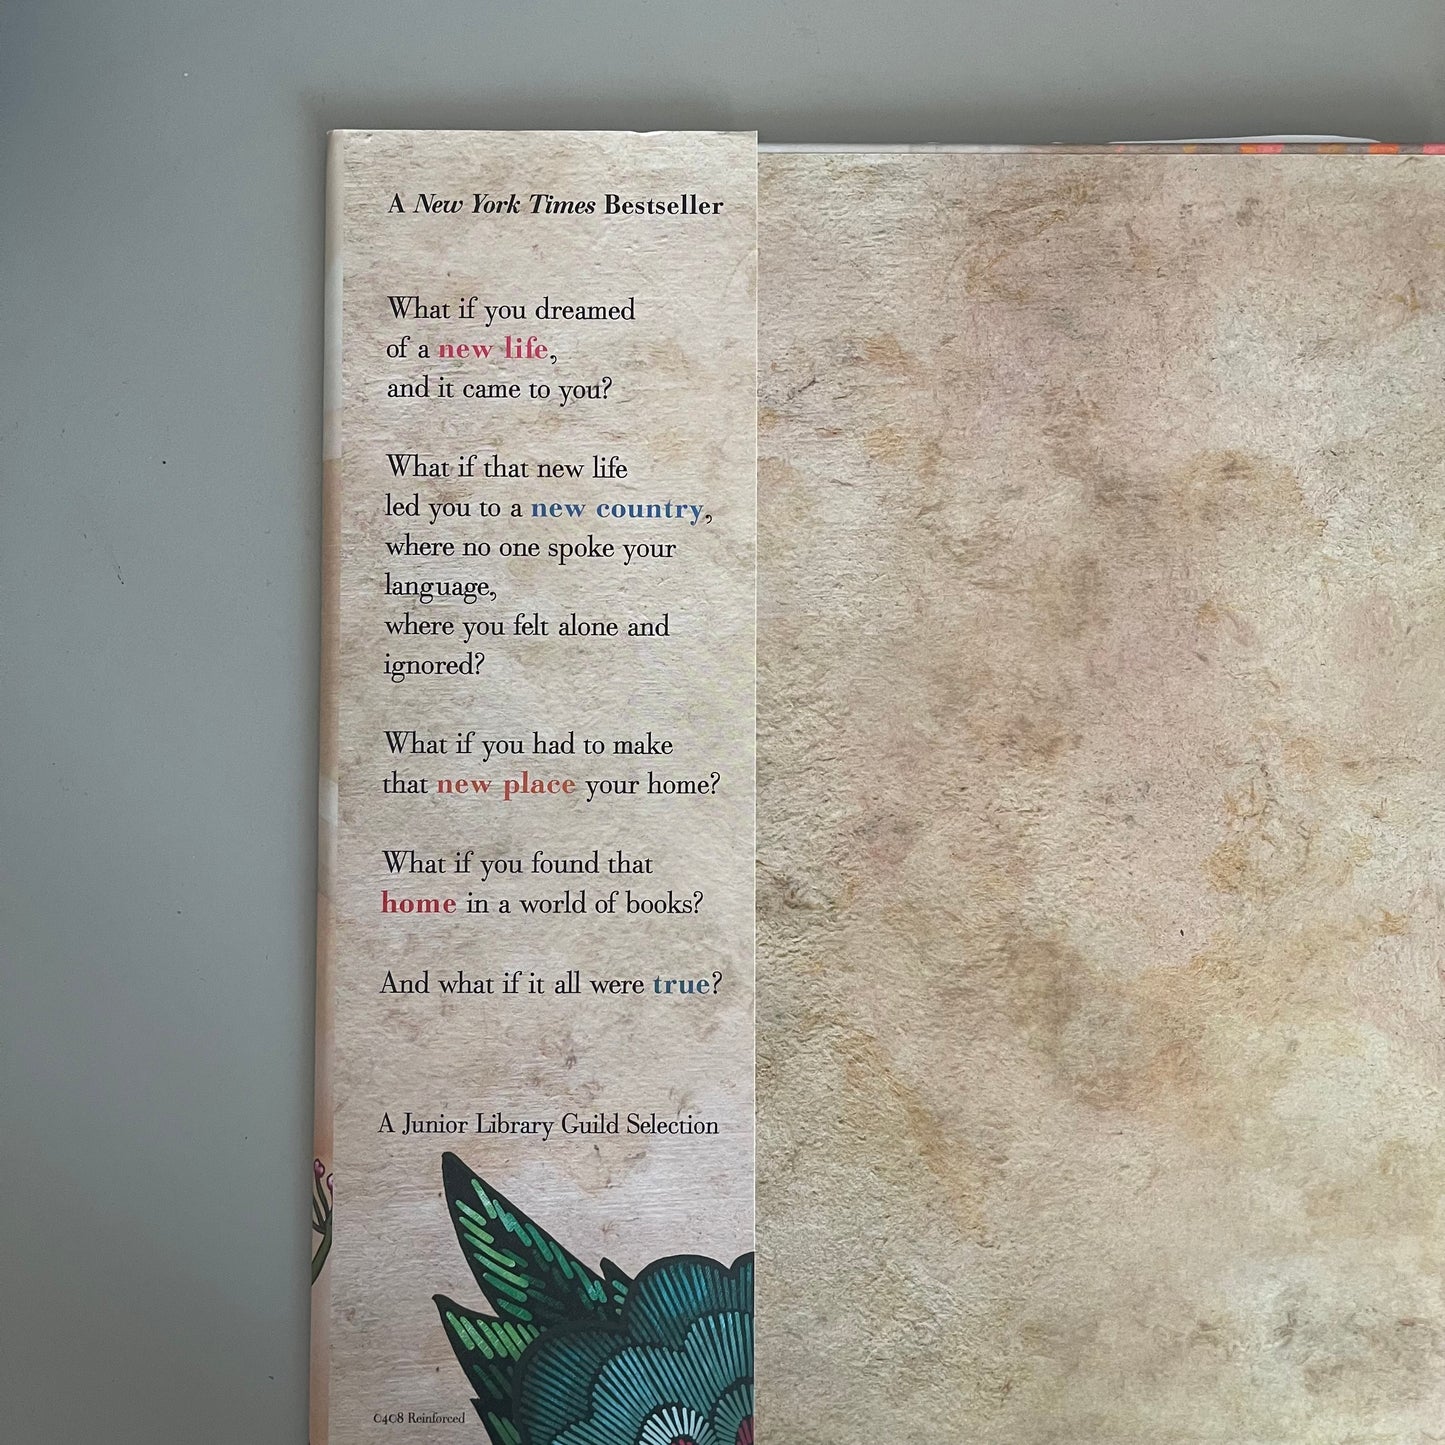 A New York Times Bestseller
What if you dreamed
of a new life,
and it came to you?
What if that new life
led you to a new country,
where no one spoke your
language,
where you felt alone and
ignored?
What if you had to make
that new place your home?
What if you found that
home in a world of books?
And what if it all were true?
A Junior Library Guild Selection
0408 Reinforced